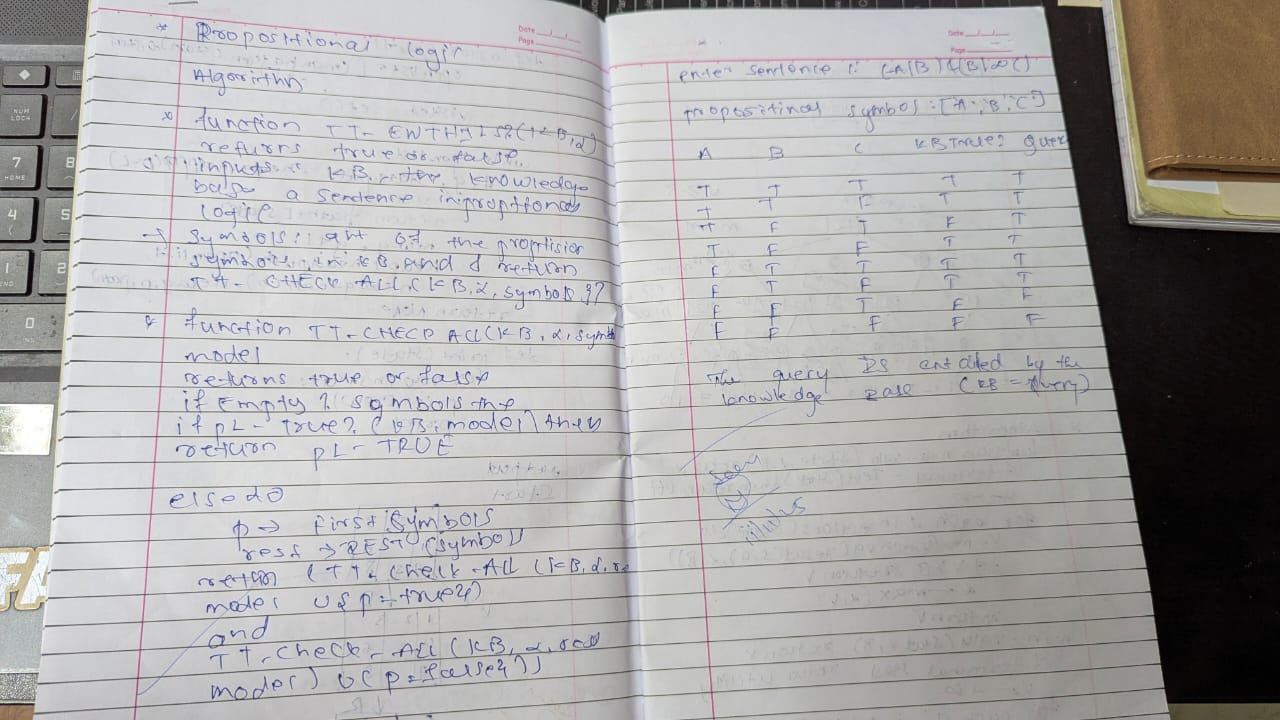 * Propositional logic
Algorithm
* function TT-ENTAILS?(KB,α)
returns true or false.
inputs: KB, the knowledge
base a sentence in proptional
logic
→ symbols: of the proptision
symbols in KB and α return
TT-CHECK-ALL(KB,α,symbols {}
* function TT-CHECK ALL(KB,α,symb
model
returns true or false
if Empty? symbols the
if PL-True?(KB,model) then
return PL-TRUE
else do
P → first symbols
rest → REST (symbol)
return (TT-check-ALL (KB,α,re
model ∪ {p=true})
and
TT-check-All (KB,α,rest
model) ∪ {p=false})
Date
Page
Date
Page
enter sentence
propositinal symbol: ['A','B','C']
A B C KB True? quer
T T T T T
T T F T T
T F T F T
T F F T T
F T T T T
F T F T T
F F T F F
F F F F F
The query is entailed by the
knowledge Base (KB = Query)
Seen
NUM LOCK
7 HOME
8
4
5
1 END
2
0